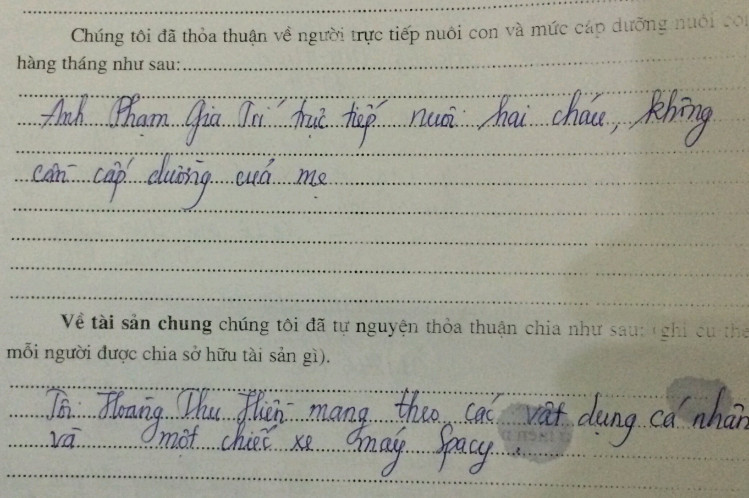 Chúng tôi đã thỏa thuận về người trực tiếp nuôi con và mức cấp dưỡng nuôi con
hàng tháng như sau:
Anh Phạm Gia Trí trực tiếp nuôi hai cháu, không
cần cấp dưỡng của mẹ
Về tài sản chung chúng tôi đã tự nguyện thỏa thuận chia như sau: (ghi cụ thể
mỗi người được chia sở hữu tài sản gì).
Tôi Hoàng Thu Hiền mang theo các vật dụng cá nhân
và một chiếc xe máy Spacy.